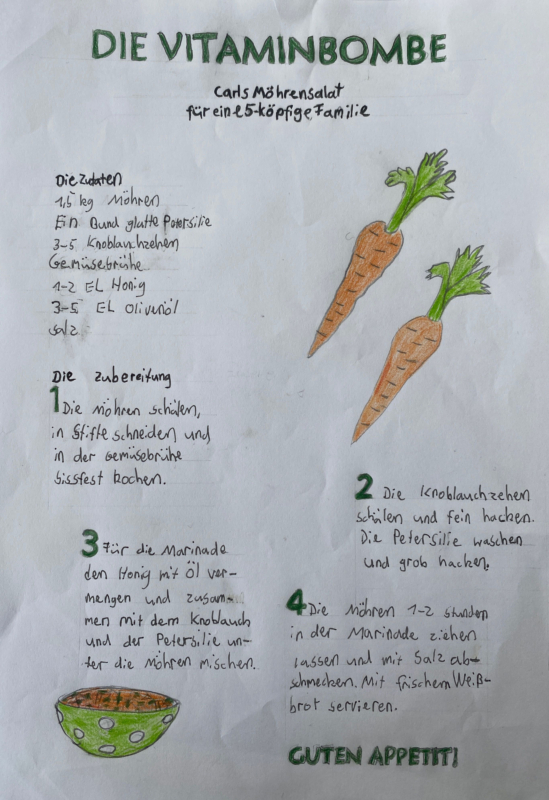 DIE VITAMINBOMBE
Carls Möhrensalat
für eine 5-köpfige Familie
Die Zutaten
1,5 kg Möhren
Ein Bund glatte Petersilie
3-5 Knoblauchzehen
Gemüsebrühe
1-2 EL Honig
3-5 EL Olivenöl
Salz
Die Zubereitung
1 Die Möhren schälen,
in Stifte schneiden und
in der Gemüsebrühe
bissfest kochen.
2 Die Knoblauchzehen
schälen und fein hacken.
Die Petersilie waschen
und grob hacken.
3 Für die Marinade
den Honig mit Öl ver-
mengen und zusam-
men mit dem Knoblauch
und der Petersilie un-
ter die Möhren mischen.
4 Die Möhren 1-2 Stunden
in der Marinade ziehen
lassen und mit Salz ab-
schmecken. Mit frischem Weiß-
brot servieren.
GUTEN APPETIT!